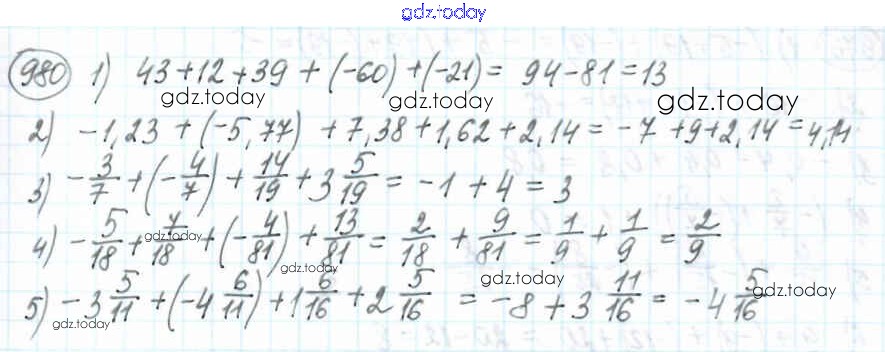 gdz.today
980 1) 43+12+39+(-60)+(-21)= 94-81=13
gdz.today gdz.today gdz.today
2) -1,23+(-5,77)+7,38+1,62+2,14=-7+9+2,14=4,14
3) -3/7+(-4/7)+14/19+3 5/19=-1+4=3
4) -5/18+7/18+(-4/81)+13/81=2/18+9/81=1/9+1/9=2/9
gdz.today gdz.today gdz.today
5) -3 5/11+(-4 6/11)+1 6/16+2 5/16=-8+3 11/16=-4 5/16
gdz.today